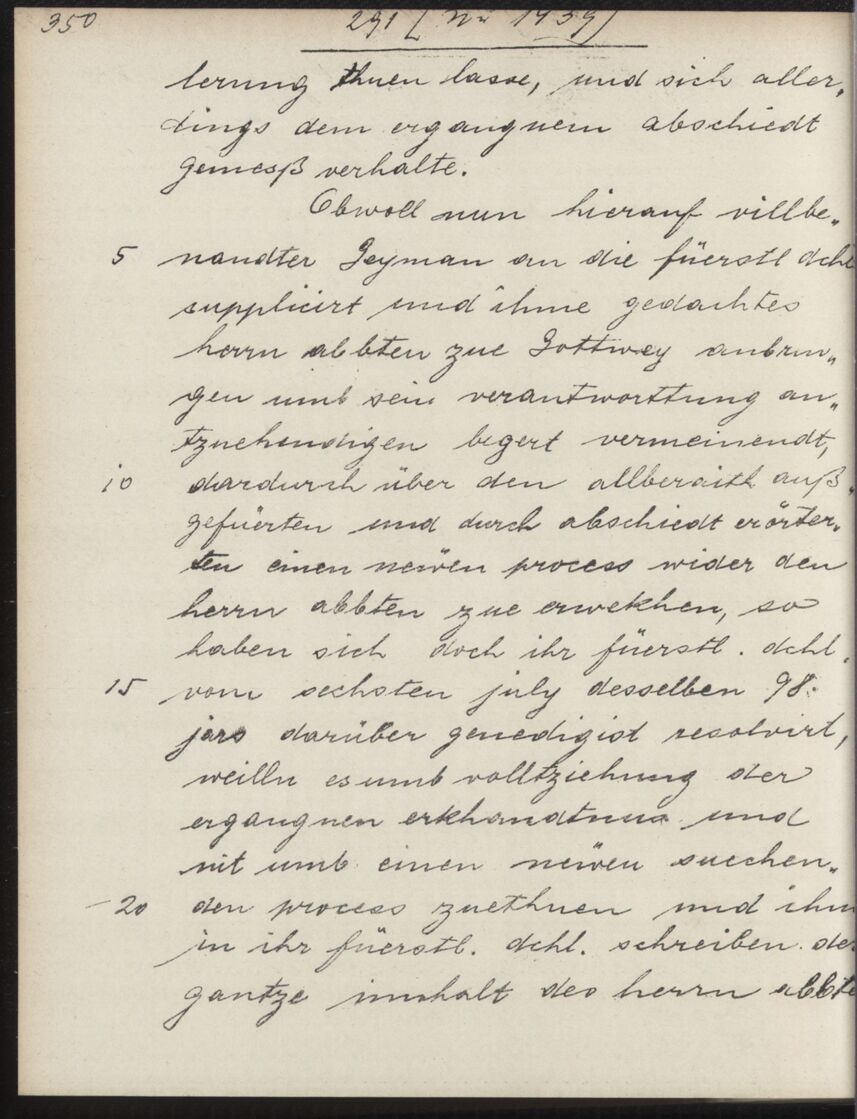 350 291 [ Nr 1939 ]
lerung thuen lasse, und sich aller„
dings dem ergangnem abschiedt
gemesß verhalte.
Obwoll nun hierauf villbe„
5 nandter Geyman an die füerstl dchl
supplicirt und ihme gedachtes
herrn abbten zue Gottwey anbrin„
gen umb sein verantworttung an„
tzuehendigen begert vermeinendt,
10 dardurch über den allberaith auß„
gefüerten und durch abschiedt erörter„
ten einen newen process wider den
herrn abbten zue erwekhen, so
haben sich doch ihr füerstl. dchl.
15 vom sechsten july desselben 98.
jars darüber genedigist resolvirt,
weilln es umb volltziehung der
ergangnen erkhandtnus und
nit umb einen newen suechen„
20 den process zuethuen und ihm
in ihr füerstl. dchl. schreiben de
gantze innhalt des herrn abbte